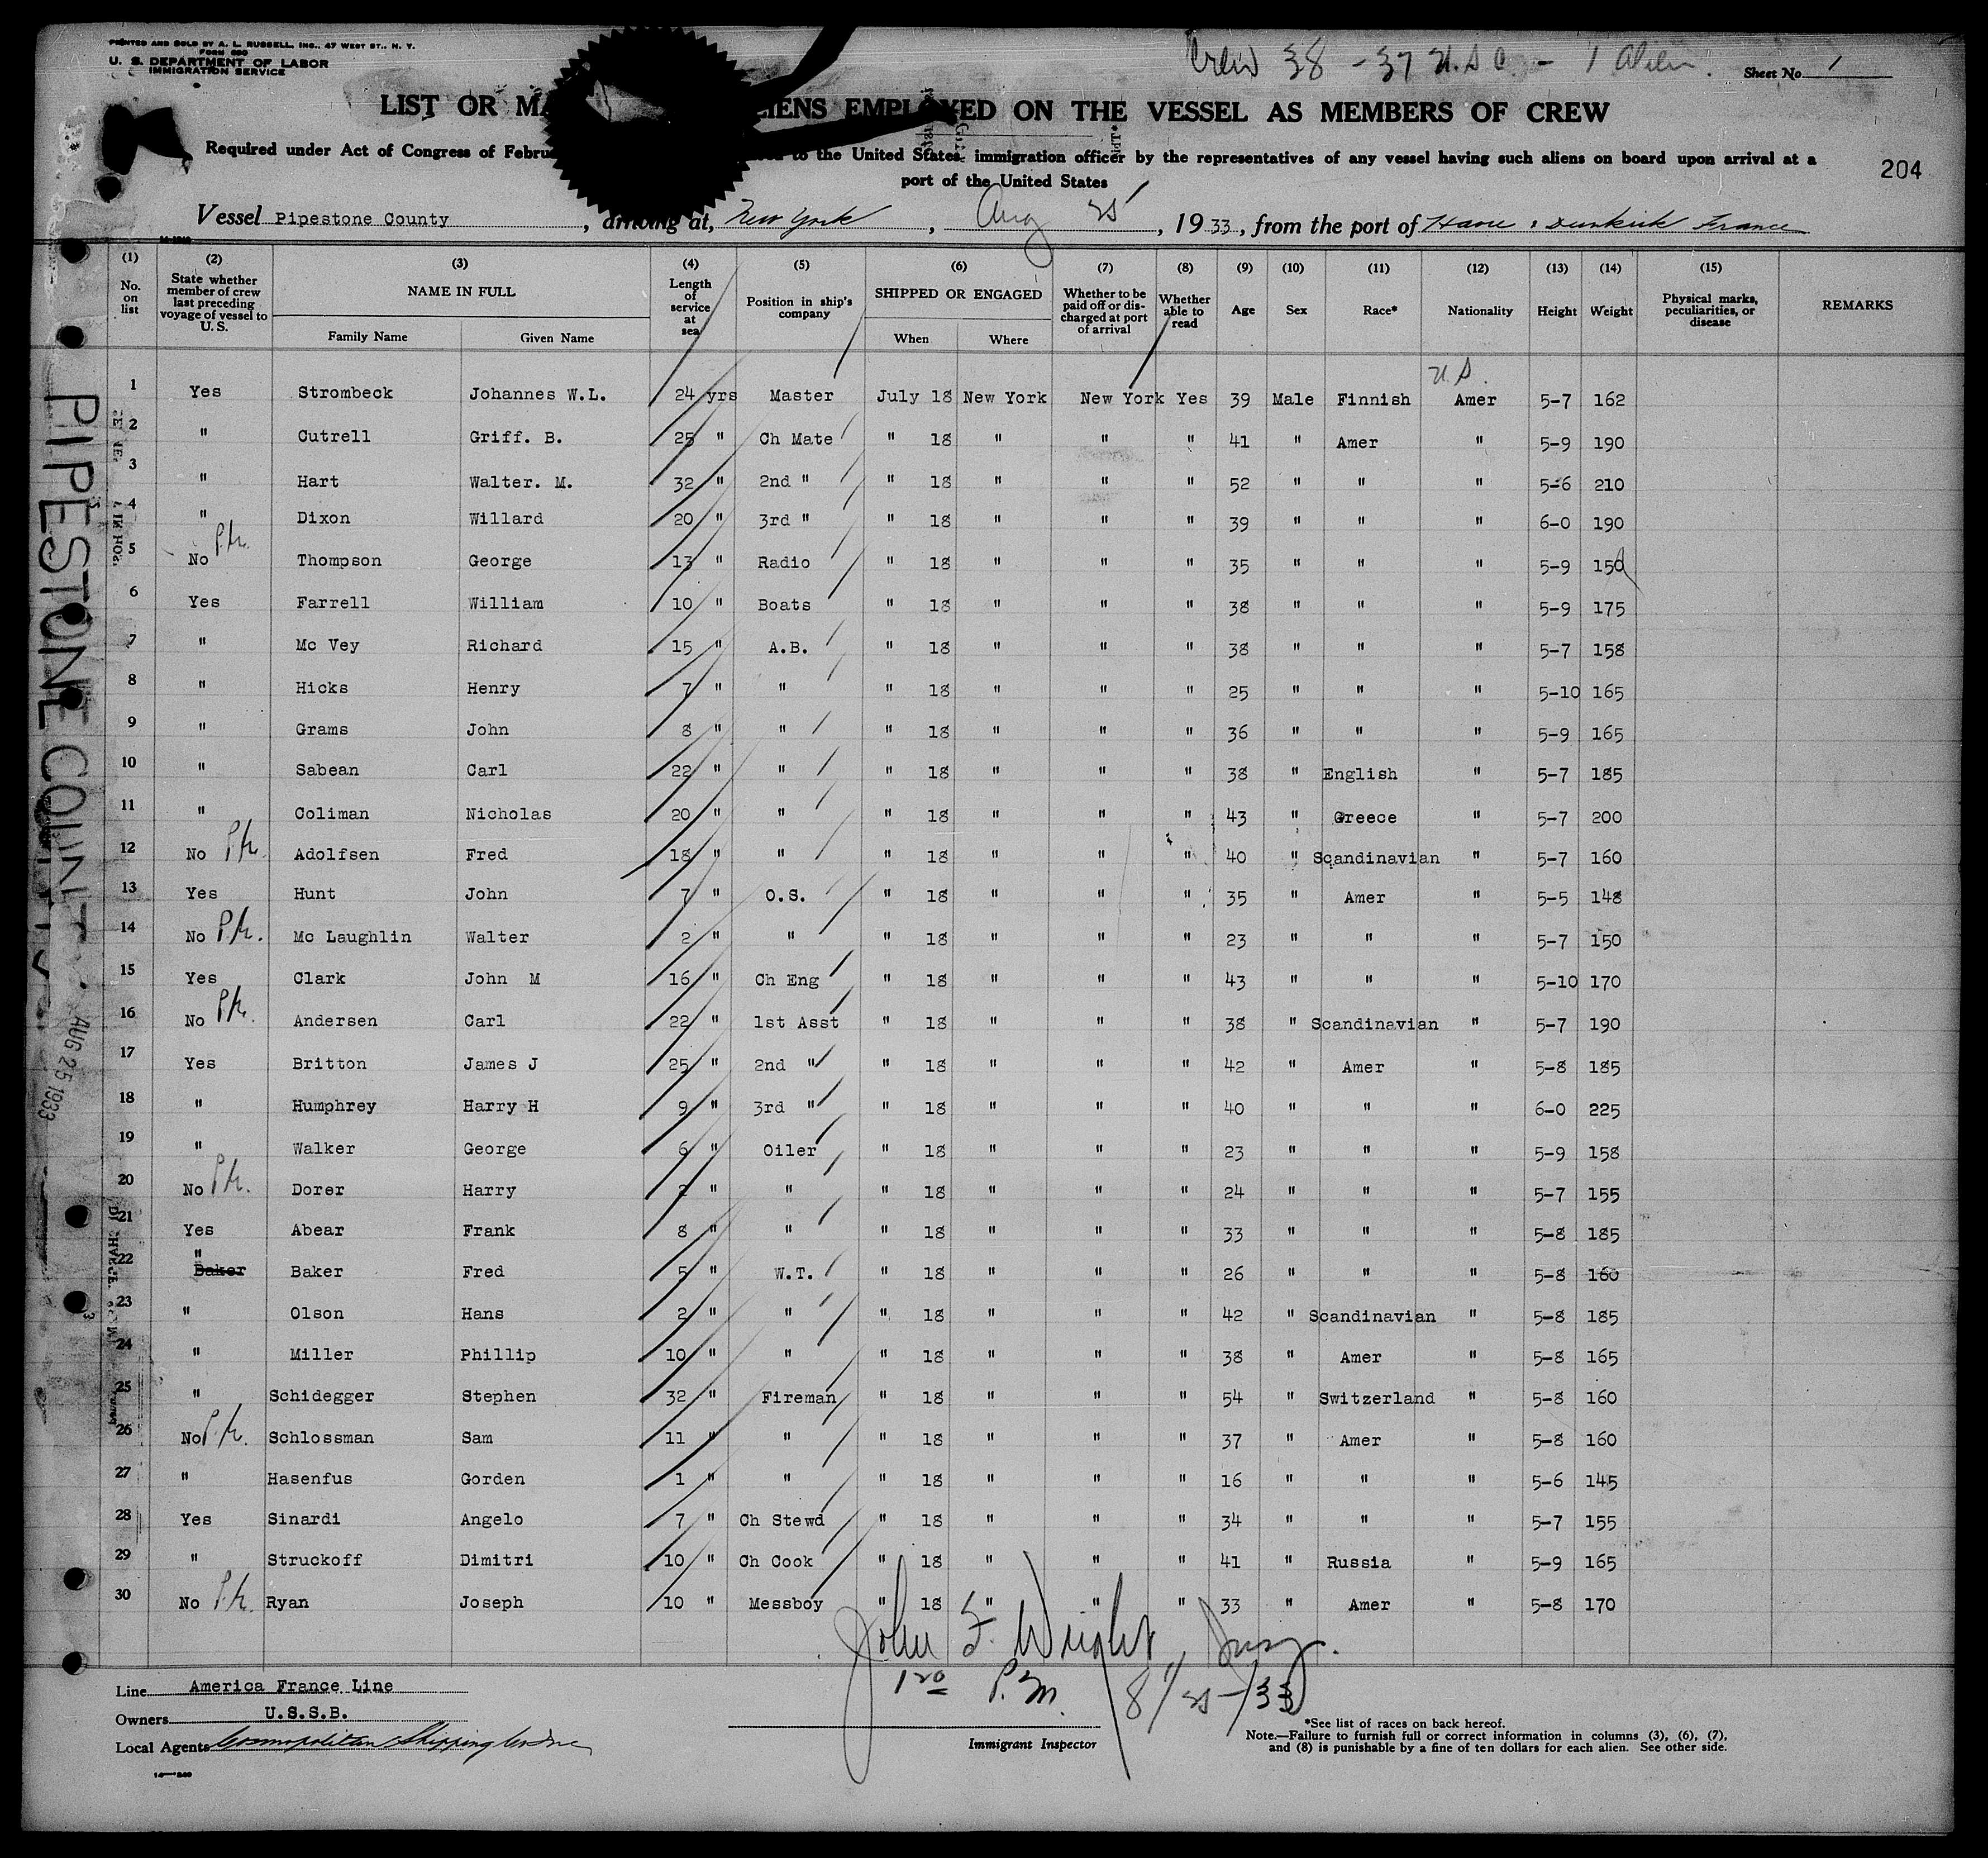 PRINTED AND SOLD BY A. L. RUSSELL, INC., 47 WEST ST., N. Y.
FORM 680
U. S. DEPARTMENT OF LABOR
IMMIGRATION SERVICE
Crew 38 - 37 U.S.C. - 1 Alien.
Sheet No. 1
LIST OR MA IENS EMPLOYED ON THE VESSEL AS MEMBERS OF CREW
Required under Act of Congress of Febru to the United States immigration officer by the representatives of any vessel having such aliens on board upon arrival at a
port of the United States
204
Vessel Pipestone County, arriving at, New York, Aug 25, 1933, from the port of Havre & Dunkirk France
(1) (2) (3) (4) (5) (6) (7) (8) (9) (10) (11) (12) (13) (14) (15)
No. on list | State whether member of crew last preceding voyage of vessel to U. S. | NAME IN FULL | Length of service at sea | Position in ship's company | SHIPPED OR ENGAGED | Whether to be paid off or discharged at port of arrival | Whether able to read | Age | Sex | Race* | Nationality | Height | Weight | Physical marks, peculiarities, or disease | REMARKS
Family Name | Given Name | When | Where
U.S.
1 Yes Strombeck Johannes W.L. 24 yrs Master July 18 New York New York Yes 39 Male Finnish Amer 5-7 162
2 " Cutrell Griff. B. 25 " Ch Mate " 18 " " " 41 " Amer " 5-9 190
3 " Hart Walter. M. 32 " 2nd " " 18 " " " 52 " " " 5-6 210
4 " Dixon Willard 20 " 3rd " " 18 " " " 39 " " " 6-0 190
5 No P.h. Thompson George 13 " Radio " 18 " " " 35 " " " 5-9 150
6 Yes Farrell William 10 " Boats " 18 " " " 38 " " " 5-9 175
7 " Mc Vey Richard 15 " A.B. " 18 " " " 38 " " " 5-7 158
8 " Hicks Henry 7 " " " 18 " " " 25 " " " 5-10 165
9 " Grams John 8 " " " 18 " " " 36 " " " 5-9 165
10 " Sabean Carl 22 " " " 18 " " " 38 " English " 5-7 185
11 " Coliman Nicholas 20 " " " 18 " " " 43 " Greece " 5-7 200
12 No P.h. Adolfsen Fred 18 " " " 18 " " " 40 " Scandinavian " 5-7 160
13 Yes Hunt John 7 " O.S. " 18 " " " 35 " Amer " 5-5 148
14 No P.h. Mc Laughlin Walter 2 " " " 18 " " " 23 " " " 5-7 150
15 Yes Clark John M 16 " Ch Eng " 18 " " " 43 " " " 5-10 170
16 No P.h. Andersen Carl 22 " 1st Asst " 18 " " " 38 " Scandinavian " 5-7 190
17 Yes Britton James J 25 " 2nd " " 18 " " " 42 " Amer " 5-8 185
18 " Humphrey Harry H 9 " 3rd " " 18 " " " 40 " " " 6-0 225
19 " Walker George 6 " Oiler " 18 " " " 23 " " " 5-9 158
20 No P.h. Dorer Harry 2 " " " 18 " " " 24 " " " 5-7 155
21 Yes Abear Frank 8 " " " 18 " " " 33 " " " 5-8 185
22 " Baker Baker Fred 5 " W.T. " 18 " " " 26 " " " 5-8 160
23 " Olson Hans 2 " " " 18 " " " 42 " Scandinavian " 5-8 185
24 " Miller Phillip 10 " " " 18 " " " 38 " Amer " 5-8 165
25 " Schidegger Stephen 32 " Fireman " 18 " " " 54 " Switzerland " 5-8 160
26 No P.h. Schlossman Sam 11 " " " 18 " " " 37 " Amer " 5-8 160
27 " Hasenfus Gorden 1 " " " 18 " " " 16 " " " 5-6 145
28 Yes Sinardi Angelo 7 " Ch Stewd " 18 " " " 34 " " " 5-7 155
29 " Struckoff Dimitri 10 " Ch Cook " 18 " " " 41 " Russia " 5-9 165
30 No P.h. Ryan Joseph 10 " Messboy " 18 " " " 33 " Amer " 5-8 170
John F. Wright, Insp.
1 30 P.M. 8/25/33
Line America France Line
Owners U.S.S.B.
Local Agents Cosmopolitan Shipping Co Inc
Immigrant Inspector
*See list of races on back hereof.
Note.—Failure to furnish full or correct information in columns (3), (6), (7),
and (8) is punishable by a fine of ten dollars for each alien. See other side.
PIPESTONE COUNTY
AUG 25 1933